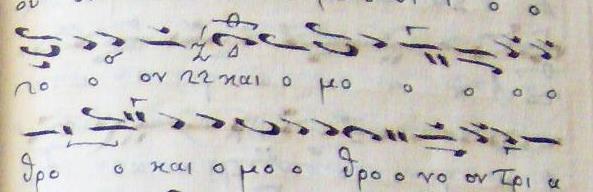 το ο ον 22 και ο μο ο ο ο ο
θρο ο και ο μο ο θρο ο νο ον τρι α